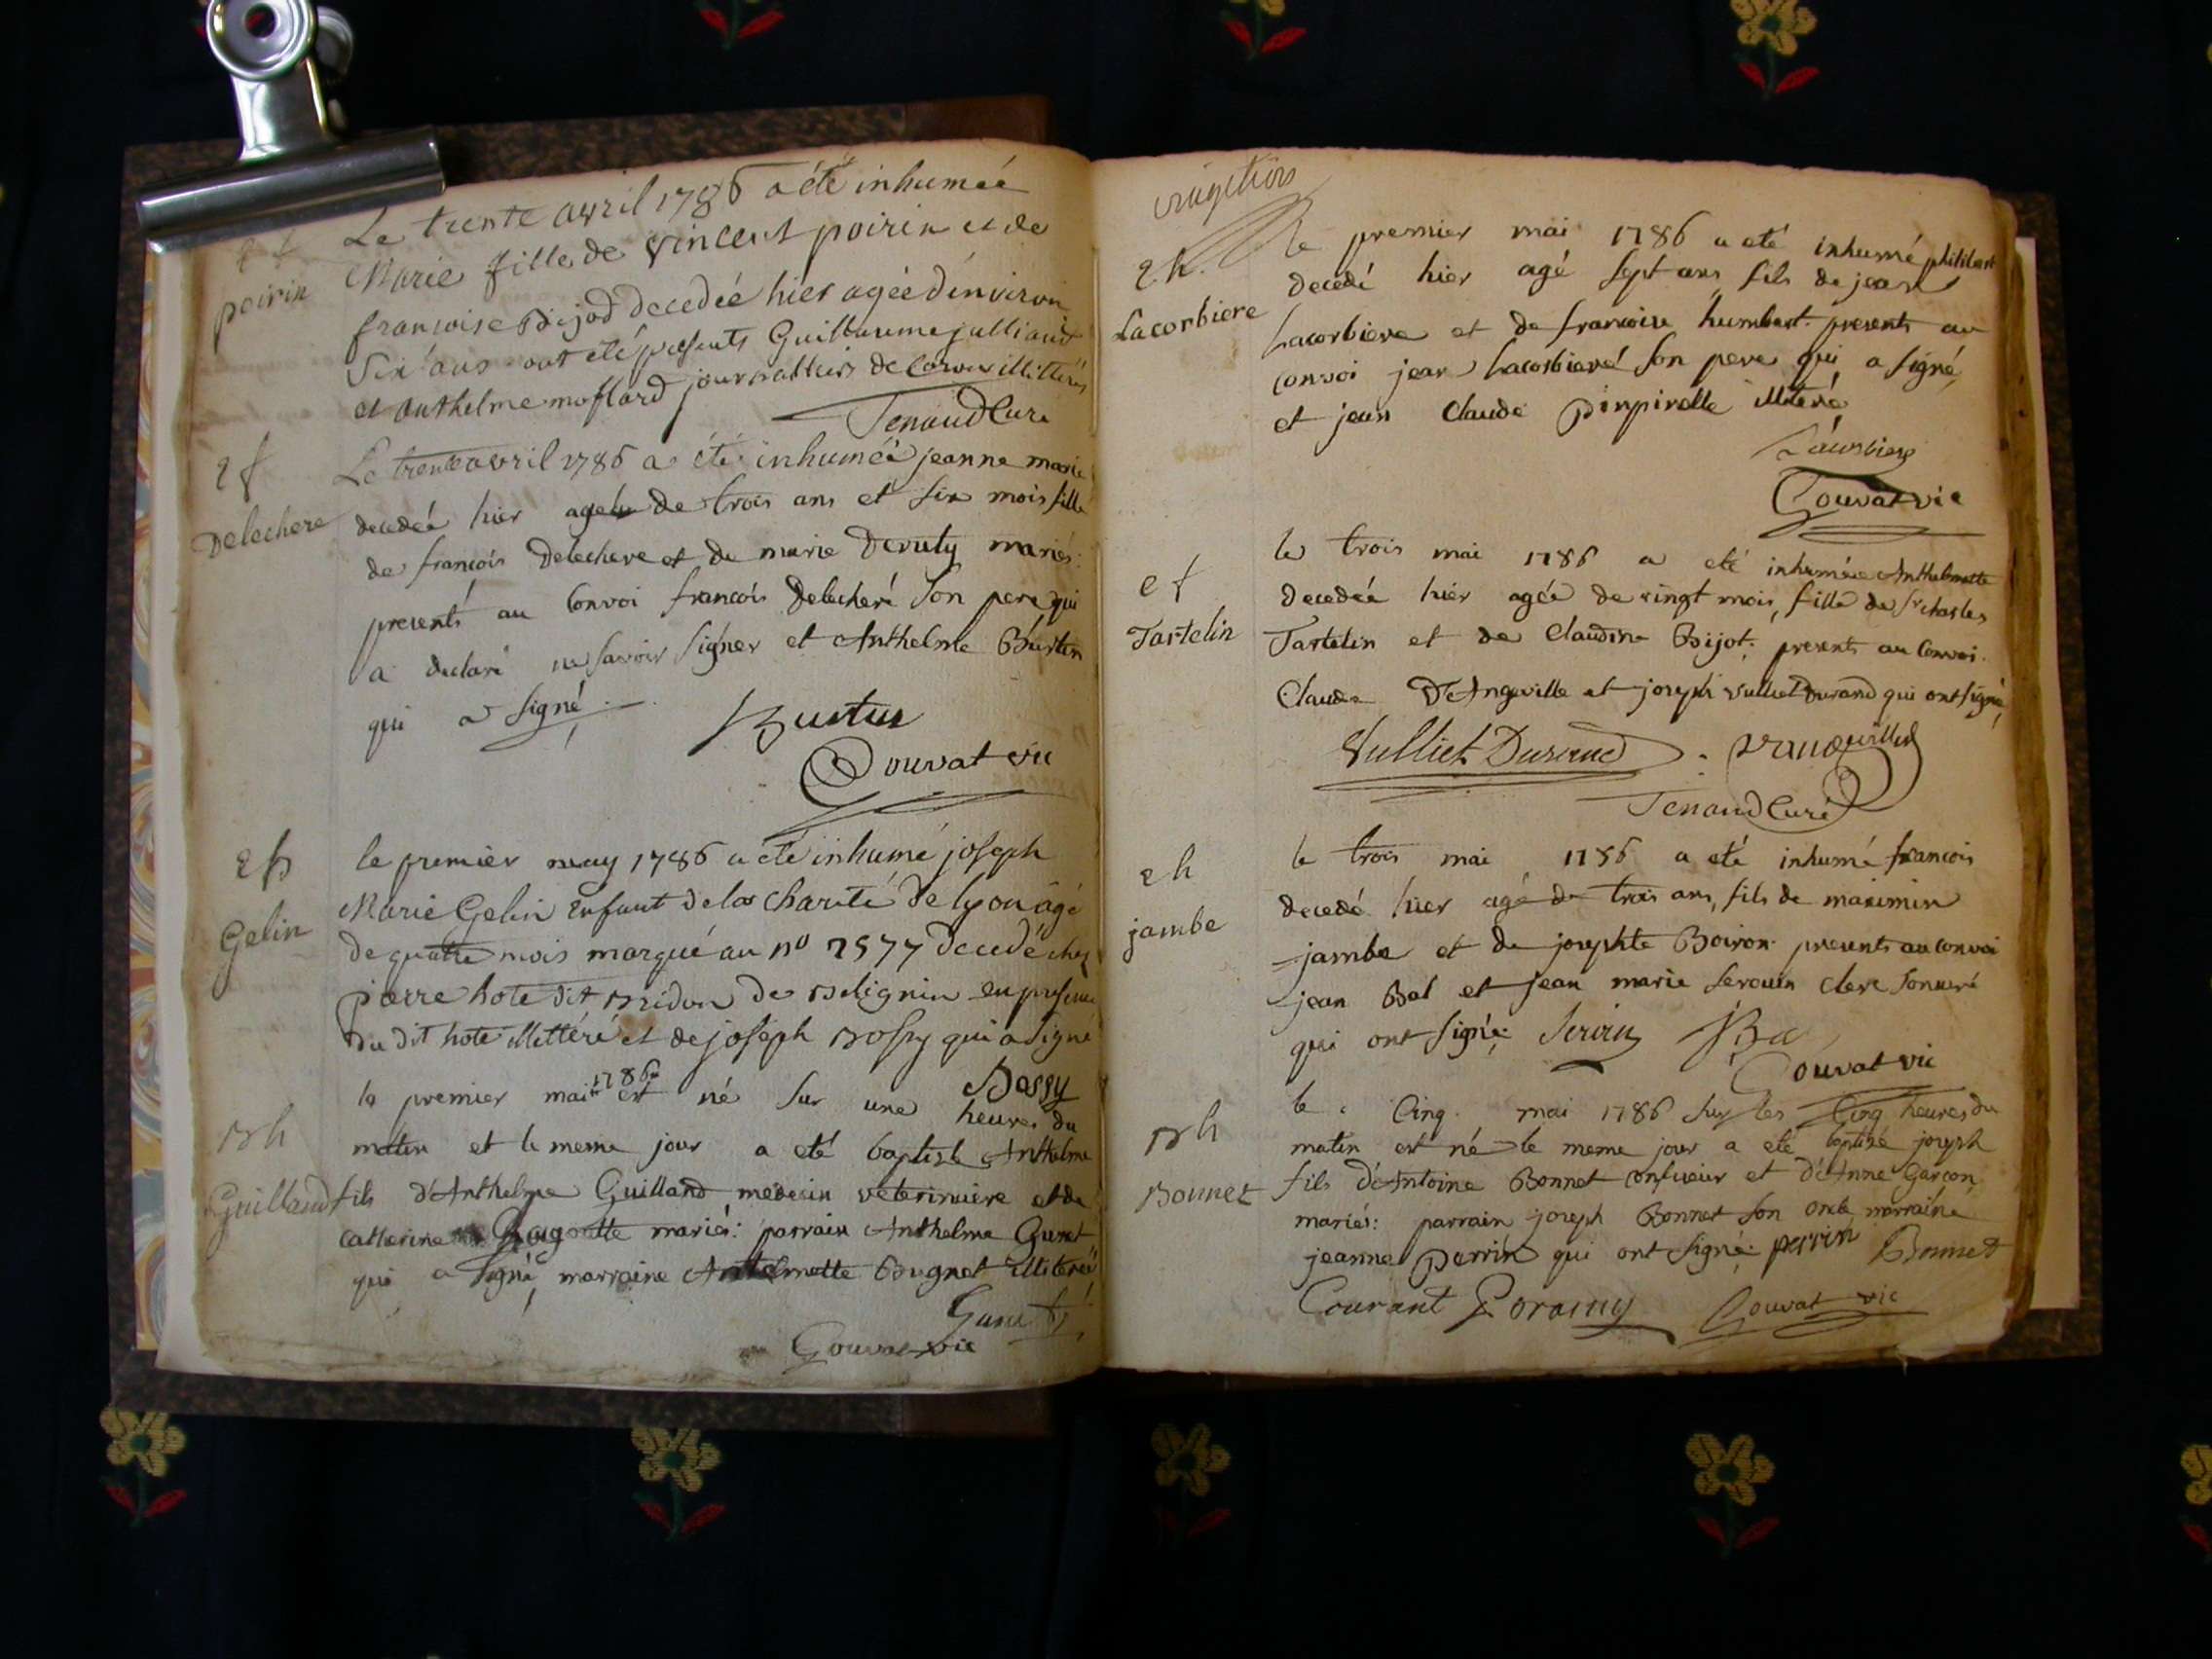 Le trente avril 1786 a été inhumée
poirin
Marie fille de Vincent poirin et de
francoise Bijod decedée hier agée d'environ
Six ans ont été presents Guillaume julliand
et anthelme moflard journalliers de illitterés
Tenaud Curé
e f
Delechere
Le trente avril 1786 a été inhumée jeanne marie
decedée hier agée de trois ans et six mois fille
de francois Delechere et de marie Deruty mariés:
presents au Convoi francois Delecheré son pere qui
a declaré ne savoir signer et Anthelme Burtin
qui a signé
Burtin
Gouvat vic
e h
Gelin
le premier may 1786 a été inhumé joseph
Marie Gelin enfant de la charité de lyon agé
de quatre mois marqué au no 7577 decedé chez
pierre hote dit Bridon de Belignin en presence
du dit hote illittéré et de joseph Bossy qui a signé
Bossy
B h
Guilland
le premier mai 1786 est né sur une heures du
matin et le meme jour a eté baptisé Anthelme
fils d'Anthelme Guilland medecin veterinaire et de
catherine Rugette mariés: parrain Anthelme Gunet
qui a signé, marraine Antelmette Bugnet illiterée
Gunet
Gouvat vic
vingt trois
e h.
Lacorbiere
le premier mai 1786 a eté inhumé philibert
decedé hier agé sept ans, fils de jean
Lacorbiere et de francoise humbert. presents au
convoi jean Lacorbiere son pere qui a signé,
et jean Claude Pinpinelle illiteré
Lacorbiere
Gouvat vic
e f
Tartelin
le trois mai 1786 a eté inhumée Anthelmette
decedée hier agée de vingt mois, fille de Sr charles
Tartelin et de Claudine Bijot: presents au Convoi.
Claude D'Angeville et joseph Vulliet Durand qui ont signé,
Vulliet Durand . D'angeville
Tenaud Curé
e h
jambe
le trois mai 1786 a eté inhumé francois
decedé hier agé de trois ans, fils de maximin
jambe et de josephte Boiron presents au convoi
jean Bal et jean marie Serouin clerc tonsuré
qui ont signé: Bal
Gouvat vic
B h
Bonnet
le Cinq mai 1786 sur les cinq heures du
matin est né le meme jour a eté baptisé joseph
fils d'Antoine Bonnet confiseur et d'Anne Garçon
mariés: parrain joseph Bonnet son oncle marraine
jeanne Perrin qui ont signé: perrin Bonnet
Courant Gouvat vic